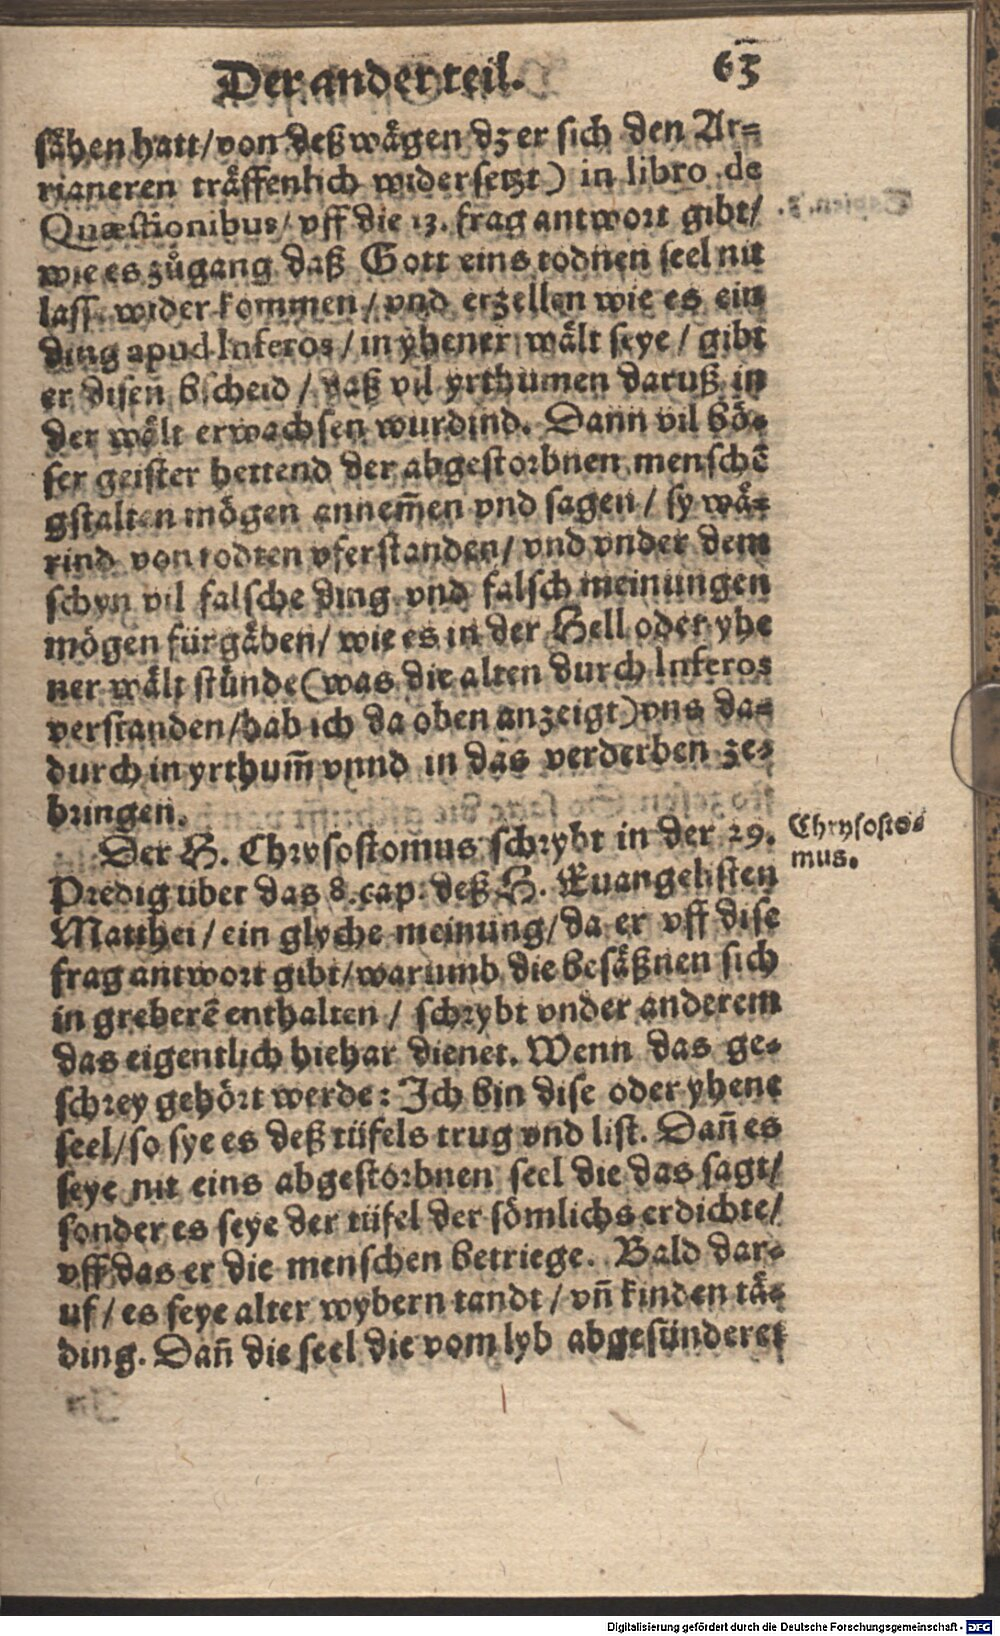 Der ander teil. 63
sähen hatt/von deßwägen dz er sich den Ar⸗
rianeren träffenlich widersetzt) in libro de
Quæstionibus/ vff die 13. frag antwort gibt/
wie es zůgang daß Gott eins todnen seel nit
lass wider kommen/ vnd erzellen wie es ein
ding apud Inferos/ in yhener wält seye/ gibt
er disen bscheid/ daß vil yrthumen daruß in
der wält erwachsen wurdind. Dann vil bö⸗
ser geister hettend der abgestorbnen menschē
gstalten mögen annem̄en vnd sagen/ sy wä⸗
rind von todten vferstanden/ vnd vnder dem
schyn vil falsche ding vnd falsch meinungen
mögen fürgäben/ wie es in der Hell oder yhe
ner wält stünde (was die alten durch Inferos
verstanden/hab ich da oben anzeigt) vns da⸗
durch in yrthum̄ vnnd in das verderben ze⸗
bringen.
Der H. Chrysostomus schrybt in der 29.
Predig über das 8. cap. deß H. Euangelisten
Matthei/ ein glyche meinung/ da er vff dise
frag antwort gibt/warumb die besäßnen sich
in greberē enthalten/ schrybt vnder anderem
das eigentlich hiehar dienet. Wenn das ge⸗
schrey gehört werde: Ich bin dise oder yhene
seel/so sye es deß tüfels trug vnd list. Dañ es
seye nit eins abgestorbnen seel die das sagt/
sonder es seye der tüfel der sömlichs erdichte/
vff das er die menschen betriege. Bald dar⸗
uf/ es seye alter wybern tandt/ vñ kinden tä⸗
ding. Dañ die seel die vom lyb abgesünderet
Chrysosto⸗
mus.
Digitalisierung gefördert durch die Deutsche Forschungsgemeinschaft - DFG